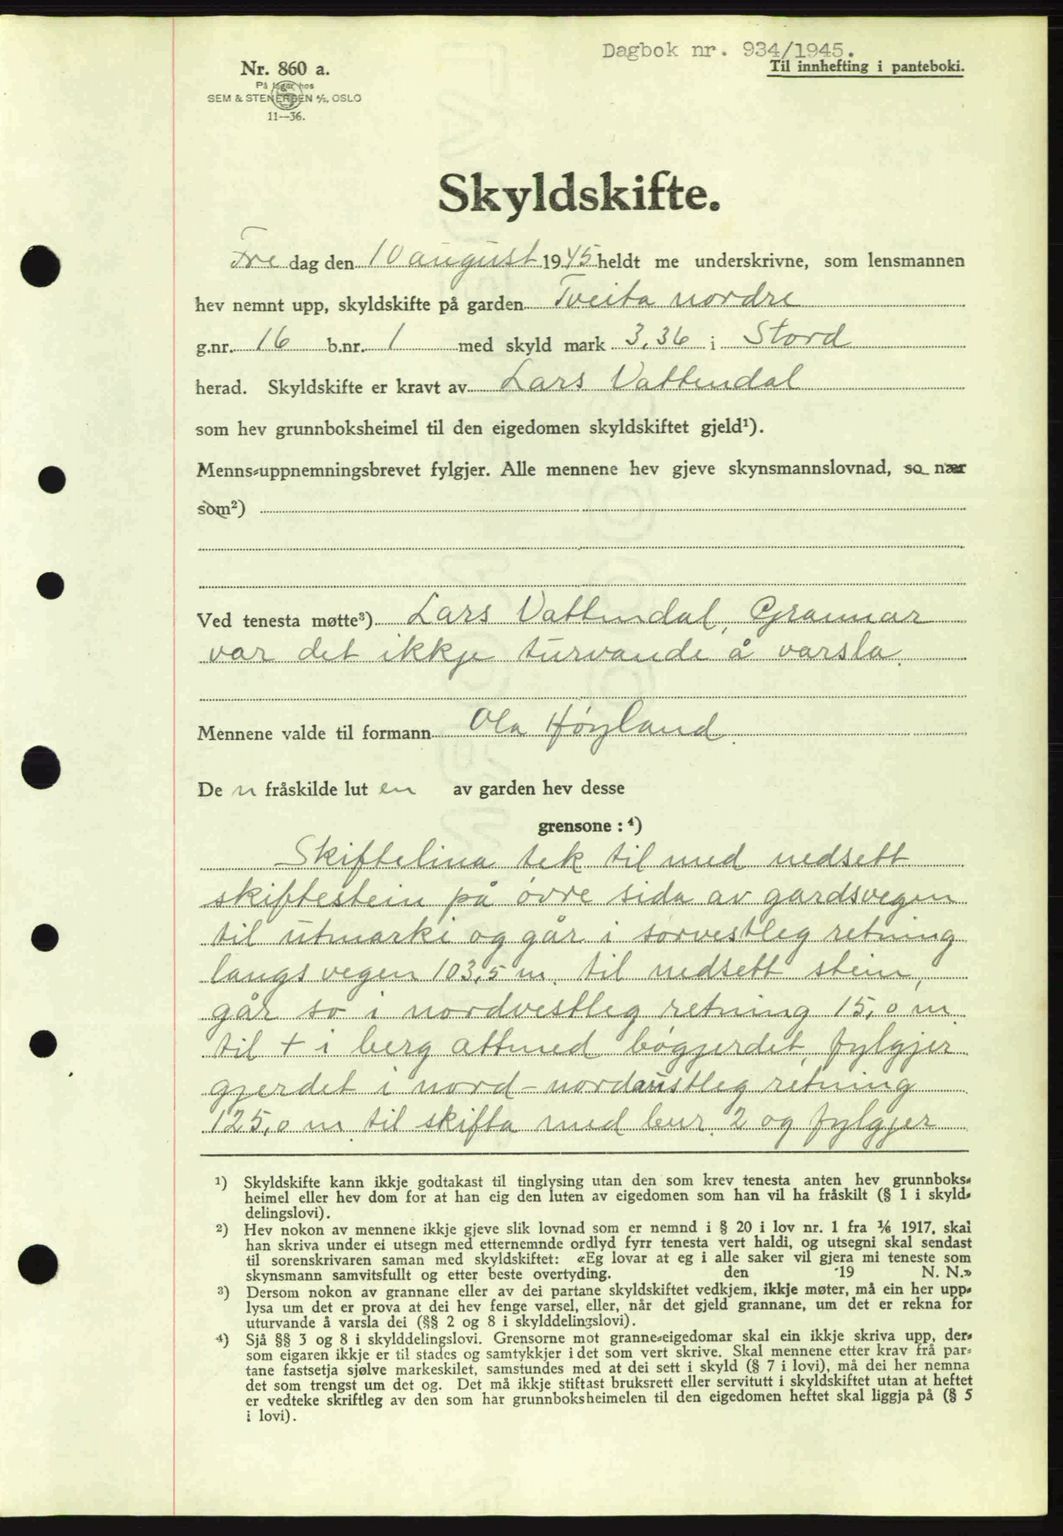 Dagbok nr. 934/1945.
Til innhefting i panteboki.
Nr. 860 a.
På lager hos
SEM & STENERSEN A/S, OSLO
11—36.
Skyldskifte.
Fre dag den 10 august 1945 heldt me underskrivne, som lensmannen
hev nemnt upp, skyldskifte på garden Tveita nordre
g.nr. 16 b.nr. 1 med skyld mark 3,36 i Stord
herad. Skyldskifte er kravt av Lars Vattendal
som hev grunnboksheimel til den eigedomen skyldskiftet gjeld¹).
Menns-uppnemningsbrevet fylgjer. Alle mennene hev gjeve skynsmannslovnad, so nær
som²)
Ved tenesta møtte³) Lars Vattendal, Grannar
var det ikkje turvande å varsla.
Mennene valde til formann Ola Høyland.
De n fråskilde lut en av garden hev desse
grensone : ⁴)
Skiftelina tek til med nedsett
skiftestein på øvre sida av gardsvegen
til utmarki og går i sørvestleg retning
langs vegen 103,5 m. til nedsett stein,
går so i nordvestleg retning 15,0 m.
til + i berg attmed bøgjerdet, fylgjer
gjerdet i nord-nordaustleg retning
125,0 m. til skifta med bnr. 2 og fylgjer
¹) Skyldskifte kann ikkje godtakast til tinglysing utan den som krev tenesta anten hev grunnboks-
heimel eller hev dom for at han eig den luten av eigedomen som han vil ha fråskilt (§ 1 i skyld-
delingslovi).
²) Hev nokon av mennene ikkje gjeve slik lovnad som er nemnd i § 20 i lov nr. 1 fra ⅙ 1917, skal
han skriva under ei utsegn med etternemnde ordlyd fyrr tenesta vert haldi, og utsegni skal sendast
til sorenskrivaren saman med skyldskiftet: «Eg lovar at eg i alle saker vil gjera mi teneste som
skynsmann samvitsfullt og etter beste overtyding. den 19 N. N.»
³) Dersom nokon av grannane eller av dei partane skyldskiftet vedkjem, ikkje møter, må ein her upp-
lysa um det er prova at dei hev fenge varsel, eller, når det gjeld grannane, um det er rekna for
uturvande å varsla dei (§§ 2 og 8 i skylddelingslovi).
⁴) Sjå §§ 3 og 8 i skylddelingslovi. Grensorne mot granne-eigedomar skal ein ikkje skriva upp, der-
som eigaren ikkje er til stades og samtykkjer i det som vert skrive. Skal mennene etter krav frå par-
tane fastsetja sjølve markeskilet, samstundes med at dei sett i skyld (§ 7 i lovi), må dei her nemna
det som trengst um det og. Det må ikkje stiftast bruksrett eller servitutt i skyldskiftet utan at heftet
er vedteke skriftleg av den som har grunnboksheimelen til den eigedomen heftet skal liggja på (§ 5
i lovi).